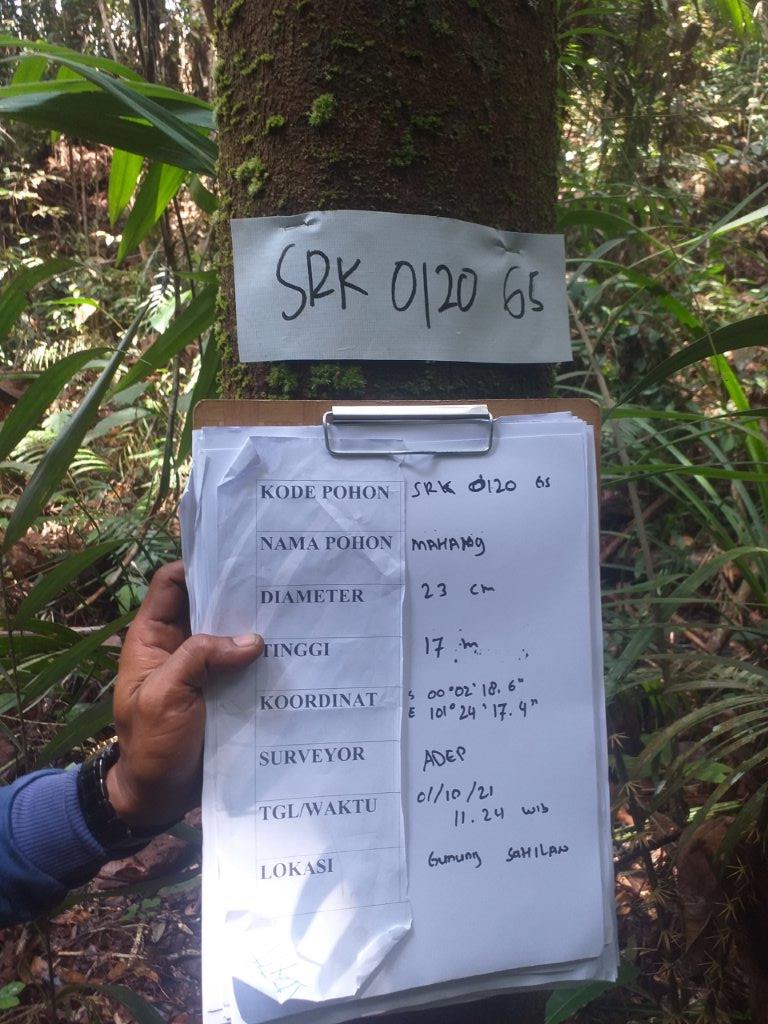 SRK 0120 GS
KODE POHON SRK 0120 GS
NAMA POHON MAHANG
DIAMETER 23 cm
TINGGI 17 m
KOORDINAT S 00°02'18.6"
E 101°24'17.4"
SURVEYOR ADEP
TGL/WAKTU 01/10/21
11.24 WIB
LOKASI Gunung SAHILAN